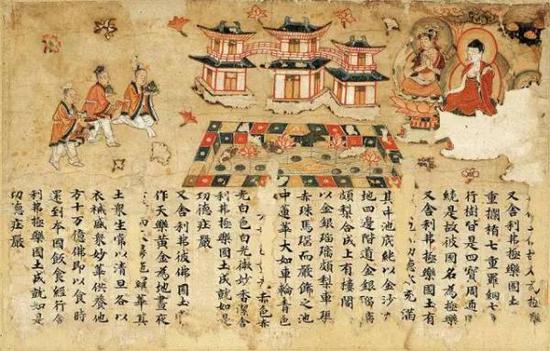 又舍利弗極樂國土
重欄楯七重羅網七
行樹皆是四寶周迊
繞是故彼國名為極樂
又舍利弗極樂國土有
功德水充滿
其中池底純以金沙
地四邊階道金銀瑠璃
頗梨合成上有樓閣
以金銀瑠璃頗梨車璖
赤珠馬瑙而嚴飾之池
中蓮華大如車輪青色
赤色赤
光白色白光微妙香潔舍
利弗極樂國土成就如是
功德莊嚴
又舍利弗彼佛國土
作天樂黃金為地晝夜
而雨曼華其
土眾生常以清旦各以
衣裓盛眾妙華供養他
方十万億佛即以食時
還到本國飯食經行舍
利弗極樂國土成就如是
功德莊嚴